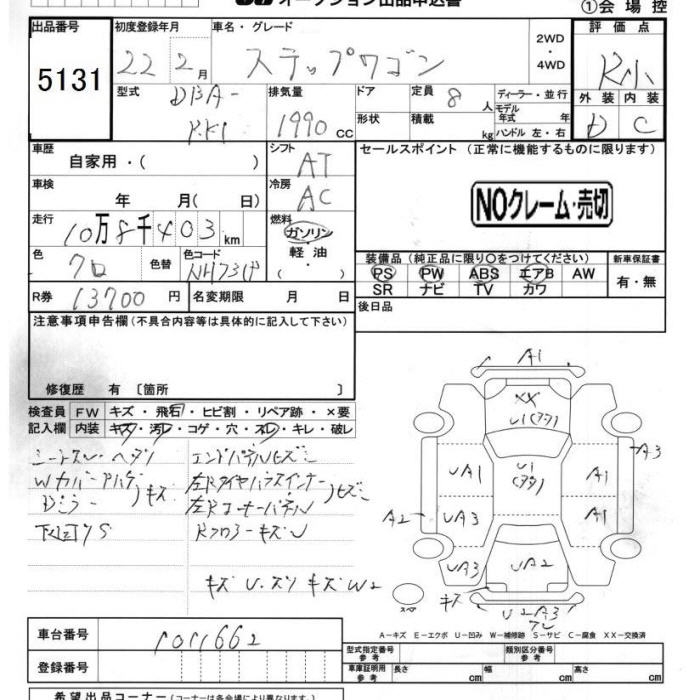 オークション出品申込書
①会場控
出品番号
5131
初度登録年月
22 2月
車名・グレード
ステップワゴン
2WD
・
4WD
評価点
R小
外装 内装
D C
型式
DBA-
RK1
排気量
1990 cc
ドア
形状
定員 8 人
積載 kg
ディーラー・並行
モデル年式 年
ハンドル 左・右
車歴
自家用・( )
シフト
AT
車検
年 月( 日)
冷房
AC
走行
10万8千403km
燃料
ガソリン
・
軽油
・
( )
色
クロ
色替
色コード
NH731P
R券 13700円
名変期限 月 日
セールスポイント (正常に機能するものに限ります)
NOクレーム・売切
装備品 (純正品に限り○をつけてください)
新車保証書
PS PW ABS エアB AW
SR ナビ TV カワ
有・無
後日品
注意事項申告欄 (不具合内容等は具体的に記入して下さい)
修復歴 有 [箇所 ]
検査員
記入欄
FW キズ・飛石・ヒビ割・リペア跡・×要
内装 キズ・汚レ・コゲ・穴・スレ・キレ・破レ
シートスレ・ヘタリ
キズ
下回りS
キズU・スリキズW2
A1
XX
U1(アタ)
U1
(アタ)
UA1
A1
A3
A2
UA3
A1
UA3
UA2
キズ
スペア
U2A3
A-キズ E-エクボ U-凹み W-補修跡 S-サビ C-腐食 XX-交換済
車台番号
1011662
登録番号
型式指定番号
参考
類別区分番号
参考
車庫証明用
参考
長さ cm
幅 cm
高さ cm
希望出品コーナー